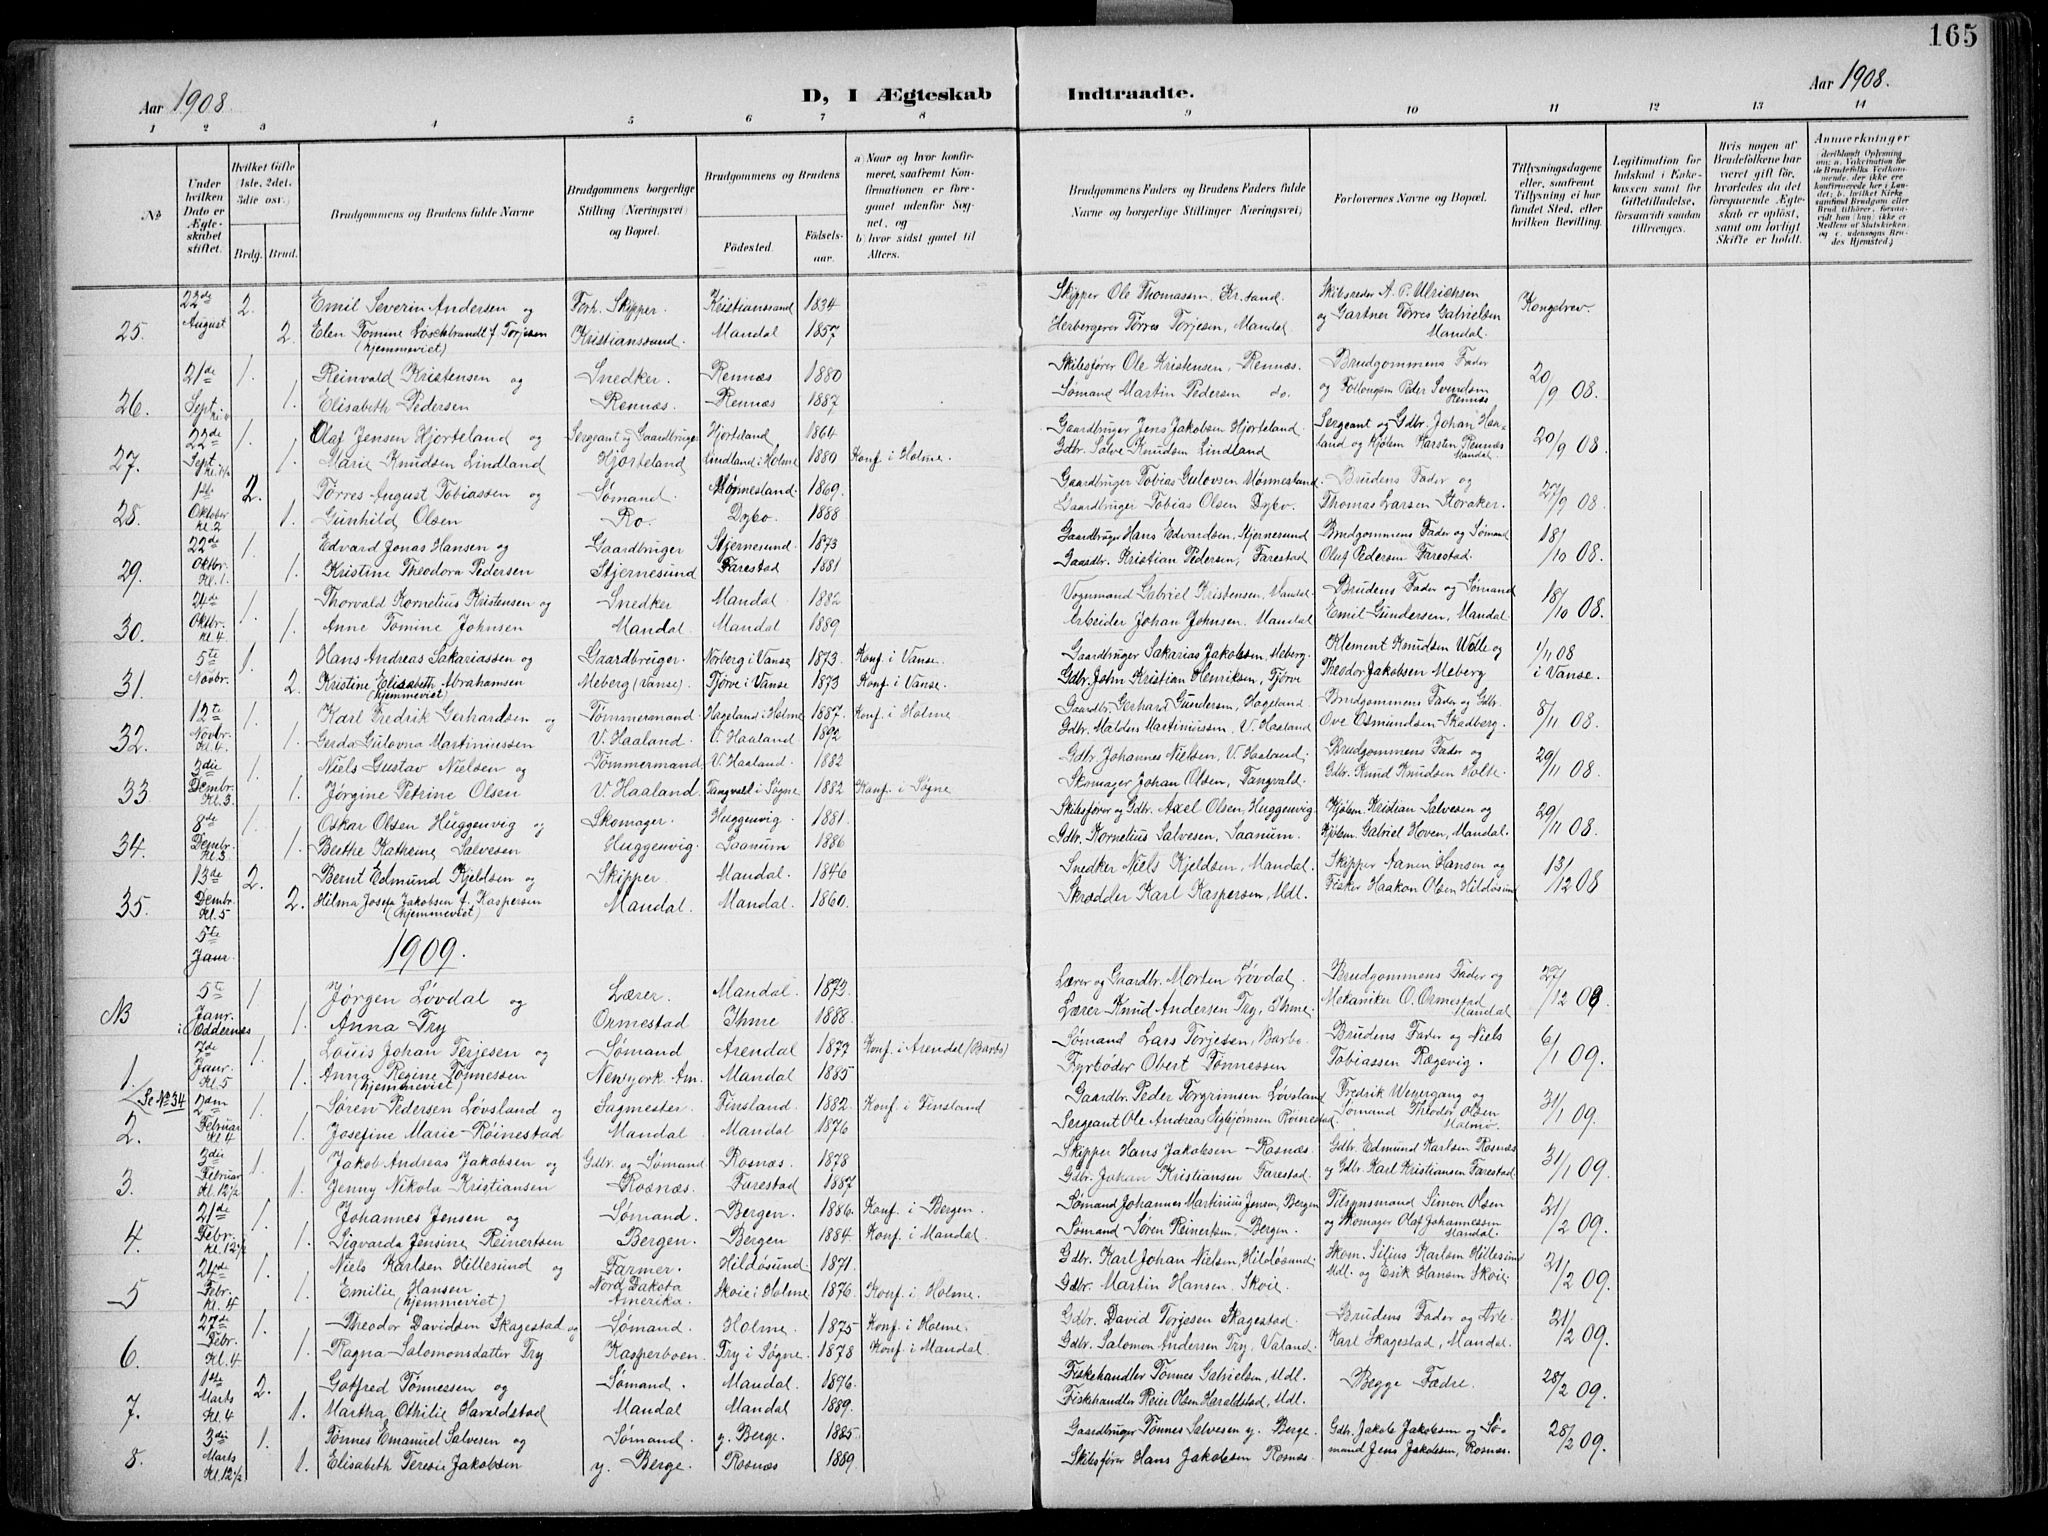 165
Aar 1908.
D, I Ægteskab Indtraadte.
Aar 1908.
1 2 3 4 5 6 7 8 9 10 11 12 13 14
No
Under hvilken Dato er Ægteskabet stiftet.
Hvilket Gifte (1ste, 2det, 3die osv.)
Brdg. Brud.
Brudgommens og Brudens fulde Navne
Brudgommens borgerlige Stilling (Næringsvei) og Bopæl.
Brudgommens og Brudens
Födested. Födsels-aar.
a) Naar og hvor konfirmeret, saafremt Konfirmationen er foregaaet udenfor Sognet, og
b) hvor sidst gaaet til Alters.
Brudgommens Faders og Brudens Faders fulde Navne og borgerlige Stillinger (Næringsvei)
Forlovernes Navne og Bopæl.
Tillysningsdagene eller, saafremt Tillysning ei har fundet Sted, efter hvilken Bevilling.
Legitimation for Indskud i Enkekassen samt for Giftetilladelse, forsaavidt saadan tiltrænges.
Hvis nogen af Brudefolkene har været gift før, hvorledes da det foregaaende Ægteskab er opløst, samt om lovligt Skifte er holdt.
Anmærkninger
22de 2. Emil Severin Andersen og Forh. Skipper. Kristianssand 1834 Skipper Ole Thomassen, Kr.sand. Skibsreder A. P. Ulrichsen Kongebrev.
25. August 2. Elen Tomine f. Torjesen Kristianssand. Mandal 1857 Herbergerer Tørres Torjesen, Mandal og Gartner Tørres Gabrielsen
(hjemmeviet) Mandal.
21de 1. Reinvald Kristensen og Snedker. Rennæs 1880 Skibsfører Ole Kristensen, Rennæs. Brudgommens Fader 20/9 08.
26. Sept. 1. Elisabeth Pedersen Rennæs. Rennæs 1887 Sømand Martin Pedersen do. og Peder Svendsen Rennæs
22de 1. Olaf Jensen Hjorteland og Sergeant og Gaardbruger Hjorteland 1864 Gaardbruger Jens Jakobsen Hjorteland. Sergeant og Gdbr. Johan Haa- 20/9 08.
27. Sept. 1. Marie Knudsen Lindland Hjorteland Lindland i Holme 1880 Konf. i Holme. Gdbr. Salve Knudsen Lindland land og Kjøbm. Karsten Rennæs Mandal
1ste 2. Tørres August Tobiassen og Sømand. Mønnesland. 1869. Gaardbruger Tobias Gulovsen Mønnesland. Brudens Fader og 27/9 08.
28. Oktober Kl. 2 1. Gunhild Olsen Ro. Dybo. 1888 Gaardbruger Tobias Olsen Dybo. Thomas Larsen Storaker.
22de 1. Edvard Jonas Hansen og Gaardbruger Stjernesund. 1873 Gaardbruger Hans Edvardsen, Stjernesund Brudgommens Fader og Sømand 18/10 08.
29. Oktbr. Kl. 1. 1. Kristine Theodora Pedersen Stjernesund Farestad 1881 Gaardbr. Kristian Pedersen, Farestad Oluf Pedersen Farestad.
24de 1. Thorvald Kornelius Kristensen og Snedker Mandal 1882 Vognmand Gabriel Kristensen, Mandal Brudens Fader og Sømand 18/10 08.
30. Oktbr. Kl. 4 1. Anne Tomine Johnsen Mandal. Mandal 1889 Arbeider Johan Johnsen, Mandal Emil Gundersen, Mandal
5te 1. Hans Andreas Sakariassen og Gaardbruger. Norberg i Vanse 1873. Konf. i Vanse. Gaardbruger Sakarias Jakobsen, Meberg. Klement Knudsen og 1/11 08
31. Novbr. 2. Kristine Elisabeth Abrahamsen Meberg (Vanse) Tjørve i Vanse 1873 Konf. i Vanse. Gdbr. John Kristian Henriksen, Tjørve Theodor Jakobsen Meberg i Vanse.
(hjemmeviet)
12te 1. Karl Fredrik Gerhardsen og Tømmermand. Hageland i Holme 1887. Konf. i Holme Gaardbr. Gerhard Gundersen, Hageland Brudgommens Fader og Gdbr. 8/11 08.
32. Novbr. Kl. 4. 1. Gerda Gulovna Martiniussen V. Haaland. V. Haaland 1892 Gdbr. Martiniussen, V. Haaland Ove Osmundsen Skadberg.
3die 1. Niels Gustav Nielsen og Tømmermand V. Haaland. 1882 Gdbr. Johannes Nielsen, V. Haaland Brudgommens Fader og 29/11 08.
33 Dembr. Kl. 3. 1. Jørgine Petrine Olsen V. Haaland. Tangvald i Søgne 1882 Konf. i Søgne Skomager Johan Olsen, Tangvald. Gdbr. Knud Knudsen Holte.
8de 1. Oskar Olsen Huggenvig og Skomager. Huggenvig 1881 Skibsfører og Gdbr. Axel Olsen, Huggenvig Kjøbm. Kristian Salvesen og 29/11 08.
34. Dembr. Kl. 3 1. Berthe Kathrine Salvesen Huggenvig Saanum 1886 Gdbr. Kornelius Salvesen, Saanum. Kjøbm. Gabriel Hoven, Mandal.
13de 2. Bernt Edmund Kjeldsen og Skipper Mandal. 1846 Snedker Niels Kjeldsen, Mandal. Skipper Aanen Hansen og 13/12 08
35. Dembr. Kl. 5 2. Hilma Josefa Jakobsen f. Kaspersen Mandal. Mandal. 1860. Skrædder Karl Kaspersen, Mdl. Fisker Haakon Olsen Hildøsund
(hjemmeviet)
5te Jaur.
1909.
5te 1. Jørgen Løvdal og Lærer. Mandal. 1873. Lærer og Gaardbr. Morten Løvdal. Brudgommens Fader og 27/12 08
NB Jaur. i Oddernes 1. Anna Try Ormestad Ihme 1888. Lærer Knud Andersen Try, Ihme. Mekaniker O. Ormestad Mandal
7de 1. Louis Johan Terjesen og Sømand Arendal 1877 Konf. i Arendal (Barbo) Sømand Lars Torjesen, Barbo. Brudens Fader og Niels 6/1 09.
1. Jaur. Kl. 5 1. Anna Regine Tønnessen Newyork. Am. Mandal 1885 Fyrbøder Obert Tønnessen Tobiassen Rægevig.
(hjemmeviet)
Se No 34
2den 1. Søren Pedersen Løvsland og Sagmester Finsland. 1882. Konf. i Finsland Gaardbr. Peder Torgrimsen Løvsland Fredrik Wegergang og 31/1 09.
2. Februar Kl. 4 1. Josefine Marie Røinestad Mandal. Mandal 1876 Sergeant Ole Andreas Sigbjørnsen Røinestad. Sømand Theodor Olsen Holmø.
3die 1. Jakob Andreas Jakobsen og Gdbr. og Sømand Rosnæs. 1878 Skipper Hans Jakobsen Rosnæs. Gdbr. Edmund Karlsen Rosnæs 31/1 09.
3. Februar Kl. 12 1/2 1. Jenny Nikola Kristiansen Rosnæs. Farestad 1887 Gdbr. Johan Kristiansen Farestad. og Gdbr. Karl Kristiansen Farestad.
21de 1. Johannes Jensen og Sømand. Bergen. 1886. Konf. i Bergen. Sømand Johannes Martinius Jensen, Bergen Tilsynsmand Simon Olsen 21/2 09.
4. Febr. Kl. 12 1/2 1. Sigvarda Jensine Reinertsen Bergen. Bergen 1884 Konf. i Mandal. Sømand Søren Reinertsen, Bergen. og Skomager Olaf Johannessen Mandal.
24de 1. Niels Karlsen Hillesund og Farmer. Hildøsund 1871. Gdbr. Karl Johan Nielsen, Hildøsund. Skom. Silius Karlsen Hillesund 21/2 09.
5 Febr. Kl. 4 1. Emilie Hansen Nord Dakota Amerika. Skoie i Holme 1876. Konf. i Holme. Gdbr. Martin Hansen, Skoie. Mdl. og Erik Hansen Skoie.
(hjemmeviet)
27de 1. Theodor Davidsen Skagestad og Sømand. Holme. 1875 Konf. i Holme. Gdbr. David Torjesen Skagestad. Brudens Fader og Arb. 21/2 09.
6. Febr. Kl. 4 1. Ragna Salomonsdatter Try Kasperboen Try i Søgne 1878 Konf. i Mandal. Gdbr. Salomon Andersen Try, Valand. Karl Skagestad, Mandal.
1ste 2. Gotfred Tønnessen og Sømand. Mandal. 1876. Fiskehandler Tønnes Gabrielsen, Mdl. Begge Fædre. 28/2 09.
7. Marts Kl. 4 1. Martha Othilie Haraldstad Mandal Mandal 1889. Fiskehandler Reier Olsen Haraldstad, Mdl.
3die 1. Tønnes Emanuel Salvesen og Sømand y. Berge. 1885. Gaardbruger Tønnes Salvesen y. Berge. Gdbr. Jakob Jakobsen og Sø- 28/2 09.
8. Marts Kl. 12 1/2 1. Elisabeth Teresie Jakobsen y. Berge. Rosnæs 1889 Skibsfører Hans Jakobsen Rosnæs. mand Jens Jakobsen, Rosnæs.